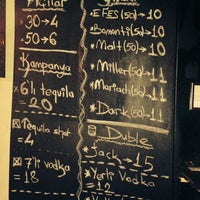 Fıçılar
.30→4
.50→6
Kampanya
*6'lı tequila
= 20
Tequila shot
= 4
*7'li vodka
= 18
*EFES(50)→10
*Bomonti(50)→10
*Malt(50)→10
*Miller(50)→11
*Mariachi(50)→11
*Dark(50)→11
Duble
*Jack→15
*Yerli Vodka
= 12